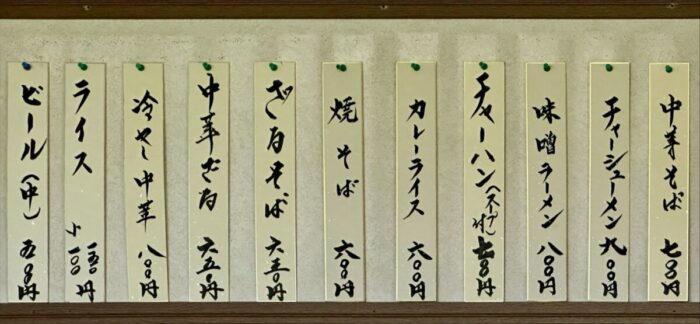 中華そば 七〇〇円
チャーシューメン 九〇〇円
味噌ラーメン 八〇〇円
チャーハン(スープ付) 七五〇円
カレーライス 六〇〇円
焼そば 六〇〇円
ざるそば 六五〇円
中華ざる 六五〇円
冷やし中華 八〇〇円
ライス 一五〇円
小 一〇〇
ビール(中) 五〇〇円